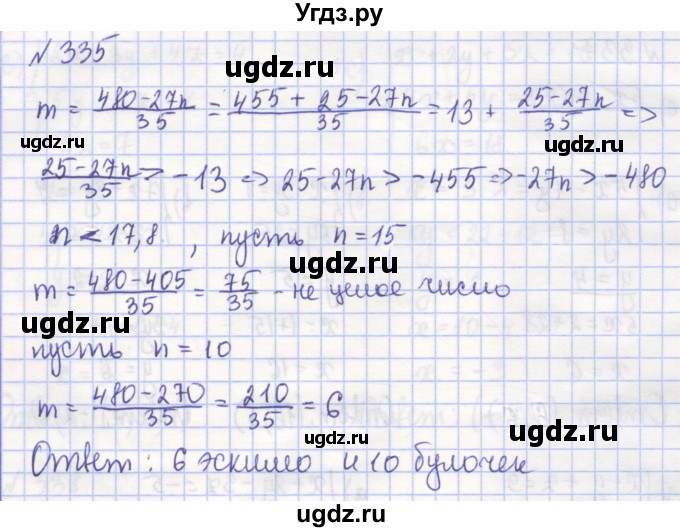 Угдз.ру
№ 335
ugdz.ru
m = (480-27n)/35 = (455 + 25-27n)/35 = 13 + (25-27n)/35 =>
ugdz.ru ugdz.ru
ugdz.ru
(25-27n)/35 > -13 => 25-27n > -455 => -27n > -480
ugdz.ru
n < 17,8. , пусть n = 15
ugdz.ru
m = (480-405)/35 = 75/35 - не целое число
ugdz.ru
ugdz.ru
пусть n = 10
ugdz.ru
m = (480-270)/35 = 210/35 = 6
ugdz.ru
ugdz.ru
Ответ: 6 эскимо и 10 булочек
ugdz.ru